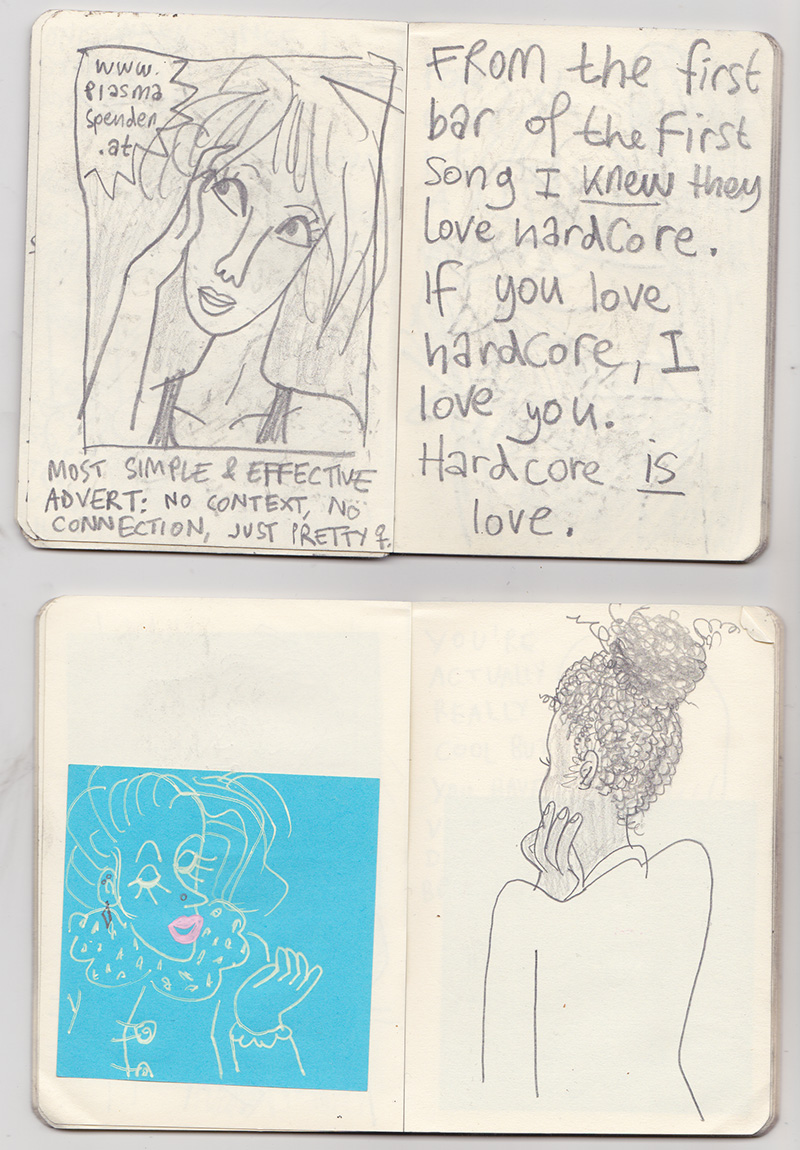 www.
Plasma
Spenden
.at
MOST SIMPLE & EFFECTIVE
ADVERT: NO CONTEXT, NO
CONNECTION, JUST PRETTY ♀.
FROM the first
bar of the First
Song I knew they
Love hardcore.
If you love
hardcore, I
love you.
Hardcore is
love.
YOU'RE
ACTUALLY
REALLY
COOL